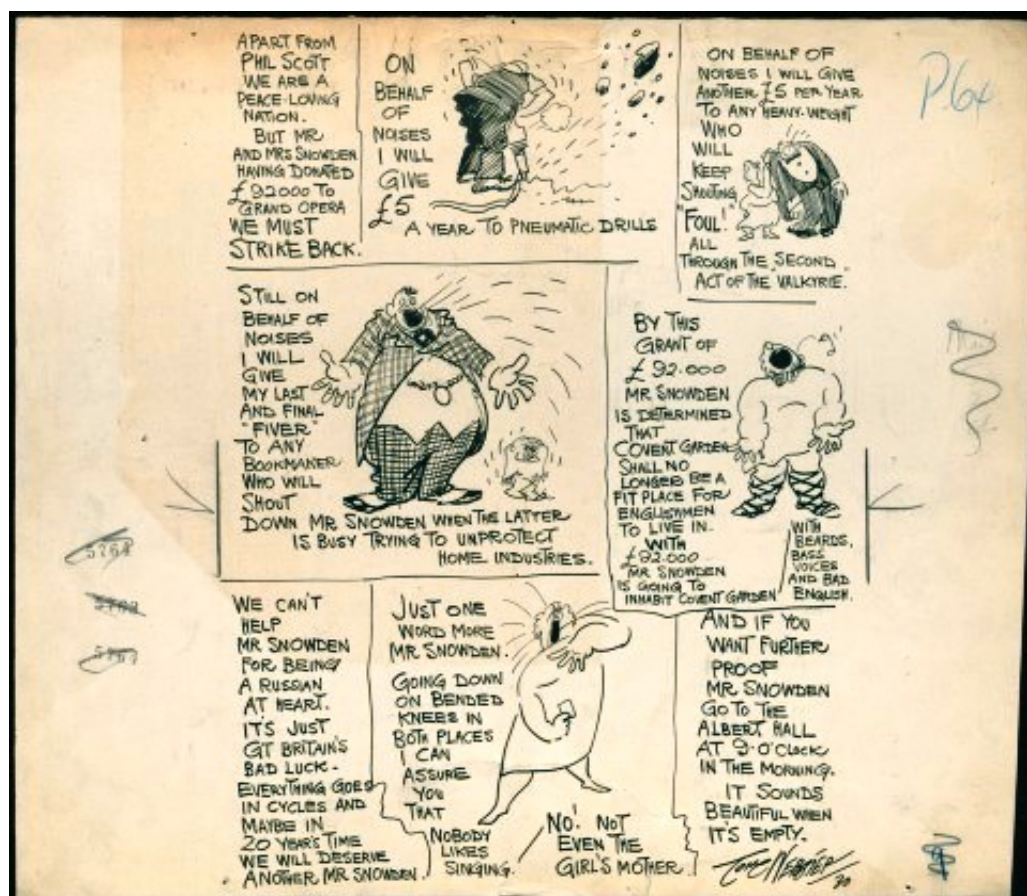 APART FROM
PHIL SCOTT
WE ARE A
PEACE-LOVING
NATION.
BUT MR
AND MRS SNOWDEN
HAVING DONATED
£92000 TO
GRAND OPERA
WE MUST
STRIKE BACK.
ON
BEHALF
OF
NOISES
I WILL
GIVE
£5
A YEAR TO PNEUMATIC DRILLS
ON BEHALF OF
NOISES I WILL GIVE
ANOTHER £5 PER YEAR
TO ANY HEAVY-WEIGHT
WHO
WILL
KEEP
SHOUTING
"FOUL!"
ALL
THROUGH THE SECOND
ACT OF THE VALKYRIE.
P64
STILL ON
BEHALF OF
NOISES
I WILL
GIVE
MY LAST
AND FINAL
"FIVER"
TO ANY
BOOKMAKER
WHO WILL
SHOUT
DOWN MR SNOWDEN WHEN THE LATTER
IS BUSY TRYING TO UNPROTECT
HOME INDUSTRIES.
BY THIS
GRANT OF
£92.000
MR SNOWDEN
IS DETERMINED
THAT
COVENT GARDEN
SHALL NO
LONGER BE A
FIT PLACE FOR
ENGLISHMEN
TO LIVE IN.
WITH
£92.000
MR SNOWDEN
IS GOING TO
INHABIT COVENT GARDEN
WITH
BEARDS,
BASS
VOICES
AND BAD
ENGLISH.
WE CAN'T
HELP
MR SNOWDEN
FOR BEING
A RUSSIAN
AT HEART.
IT'S JUST
GT BRITAIN'S
BAD LUCK.
EVERYTHING GOES
IN CYCLES AND
MAYBE IN
20 YEAR'S TIME
WE WILL DESERVE
ANOTHER MR SNOWDEN.
JUST ONE
WORD MORE
MR SNOWDEN.
GOING DOWN
ON BENDED
KNEES IN
BOTH PLACES
I CAN
ASSURE
YOU
THAT
NOBODY
LIKES
SINGING.
NO! NOT
EVEN THE
GIRL'S MOTHER.
AND IF YOU
WANT FURTHER
PROOF
MR SNOWDEN
GO TO THE
ALBERT HALL
AT 9-O'CLOCK
IN THE MORNING.
IT SOUNDS
BEAUTIFUL WHEN
IT'S EMPTY.